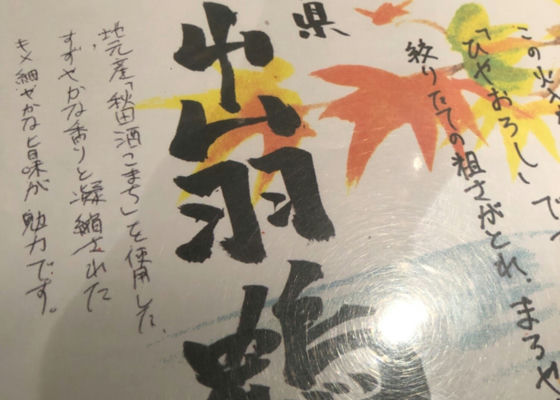 この
「ひやおろし」で
絞りたての粗さがとれ、まろや
県
出羽鶴
地元産「秋田酒こまち」を使用した、
すずやかな香りと凝縮された
キメ細やかな旨味が魅力です。